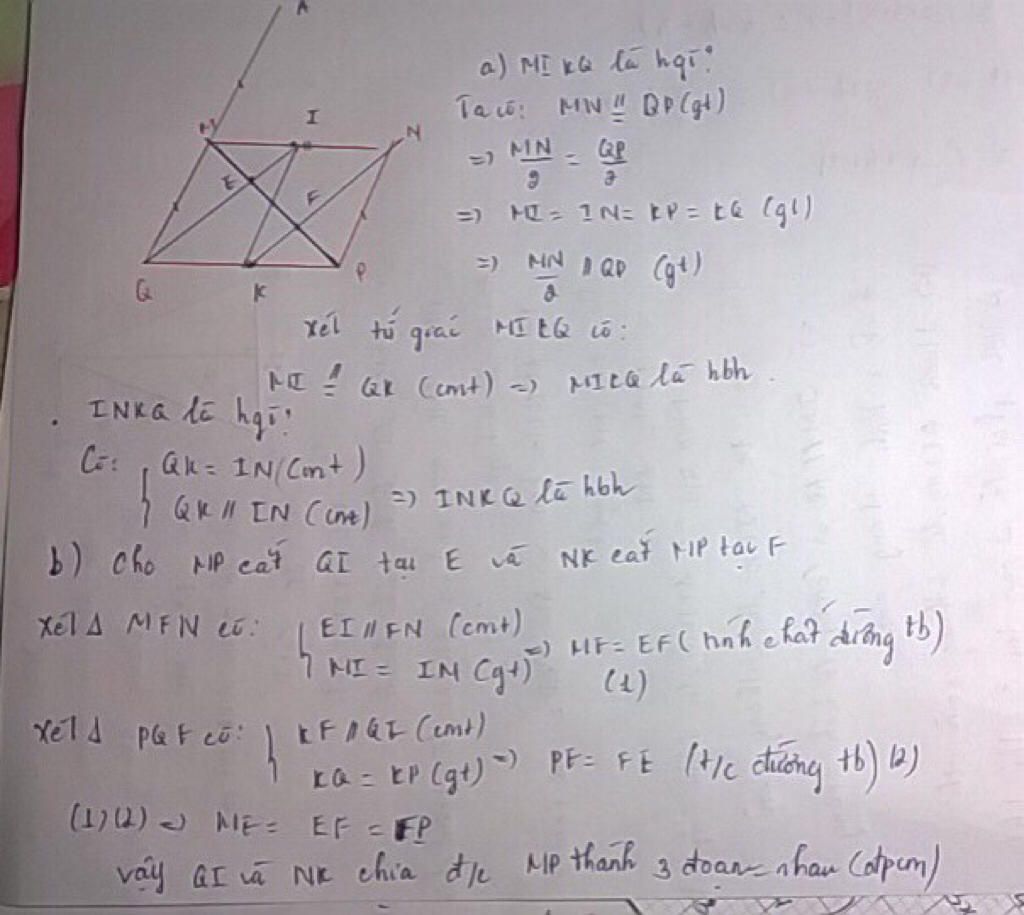 A
M
I
N
E
F
Q
K
P
a) MIKQ là hgì?
Ta có: MN //= QP (gt)
=> MN/2 = QP/2
=> MI = IN = KP = KQ (gt)
=> MN/2 // QP (gt)
Xét tứ giác MIKQ có:
MI //= QK (cmt) => MIKQ là hbh.
. INKQ là hgì?
Có: { QK = IN (cmt)
QK // IN (cmt) => INKQ là hbh
b) Cho MP cắt QI tại E và NK cắt MP tại F
Xét Δ MFN có: { EI // FN (cmt)
MI = IM (gt) => ME = EF (tính chất đường tb)
(1)
Xét Δ PQE có: { KF // QI (cmt)
KQ = KP (gt) => PF = FE (t/c đường tb) (2)
(1)(2) => ME = EF = FP
vậy QI và NK chia đ/c MP thành 3 đoạn = nhau (đpcm)